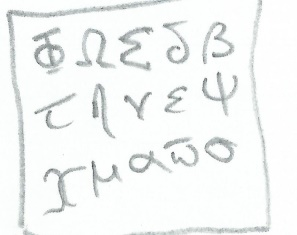 Φ Ω Σ δ β
τ η γ ε ψ
χ μ α ϖ σ